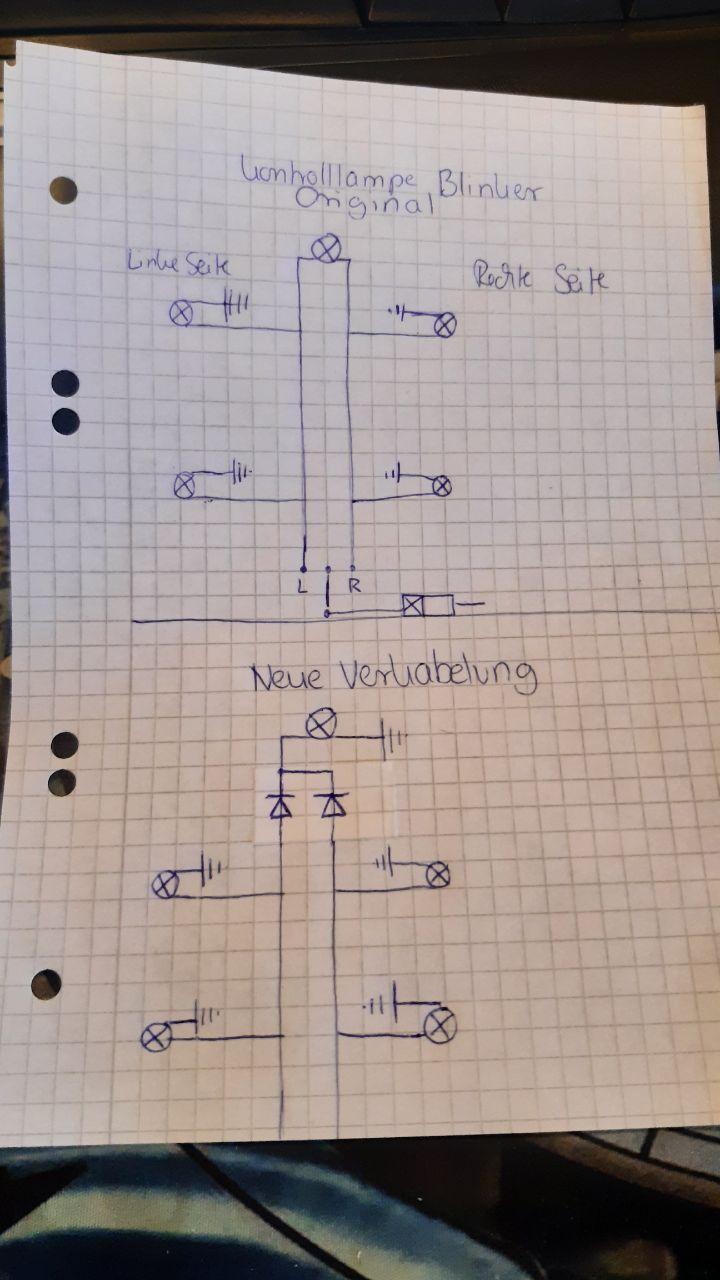 Kontrolllampe Blinker
Original
Linke Seite
Rechte Seite
L
R
Neue Verkabelung